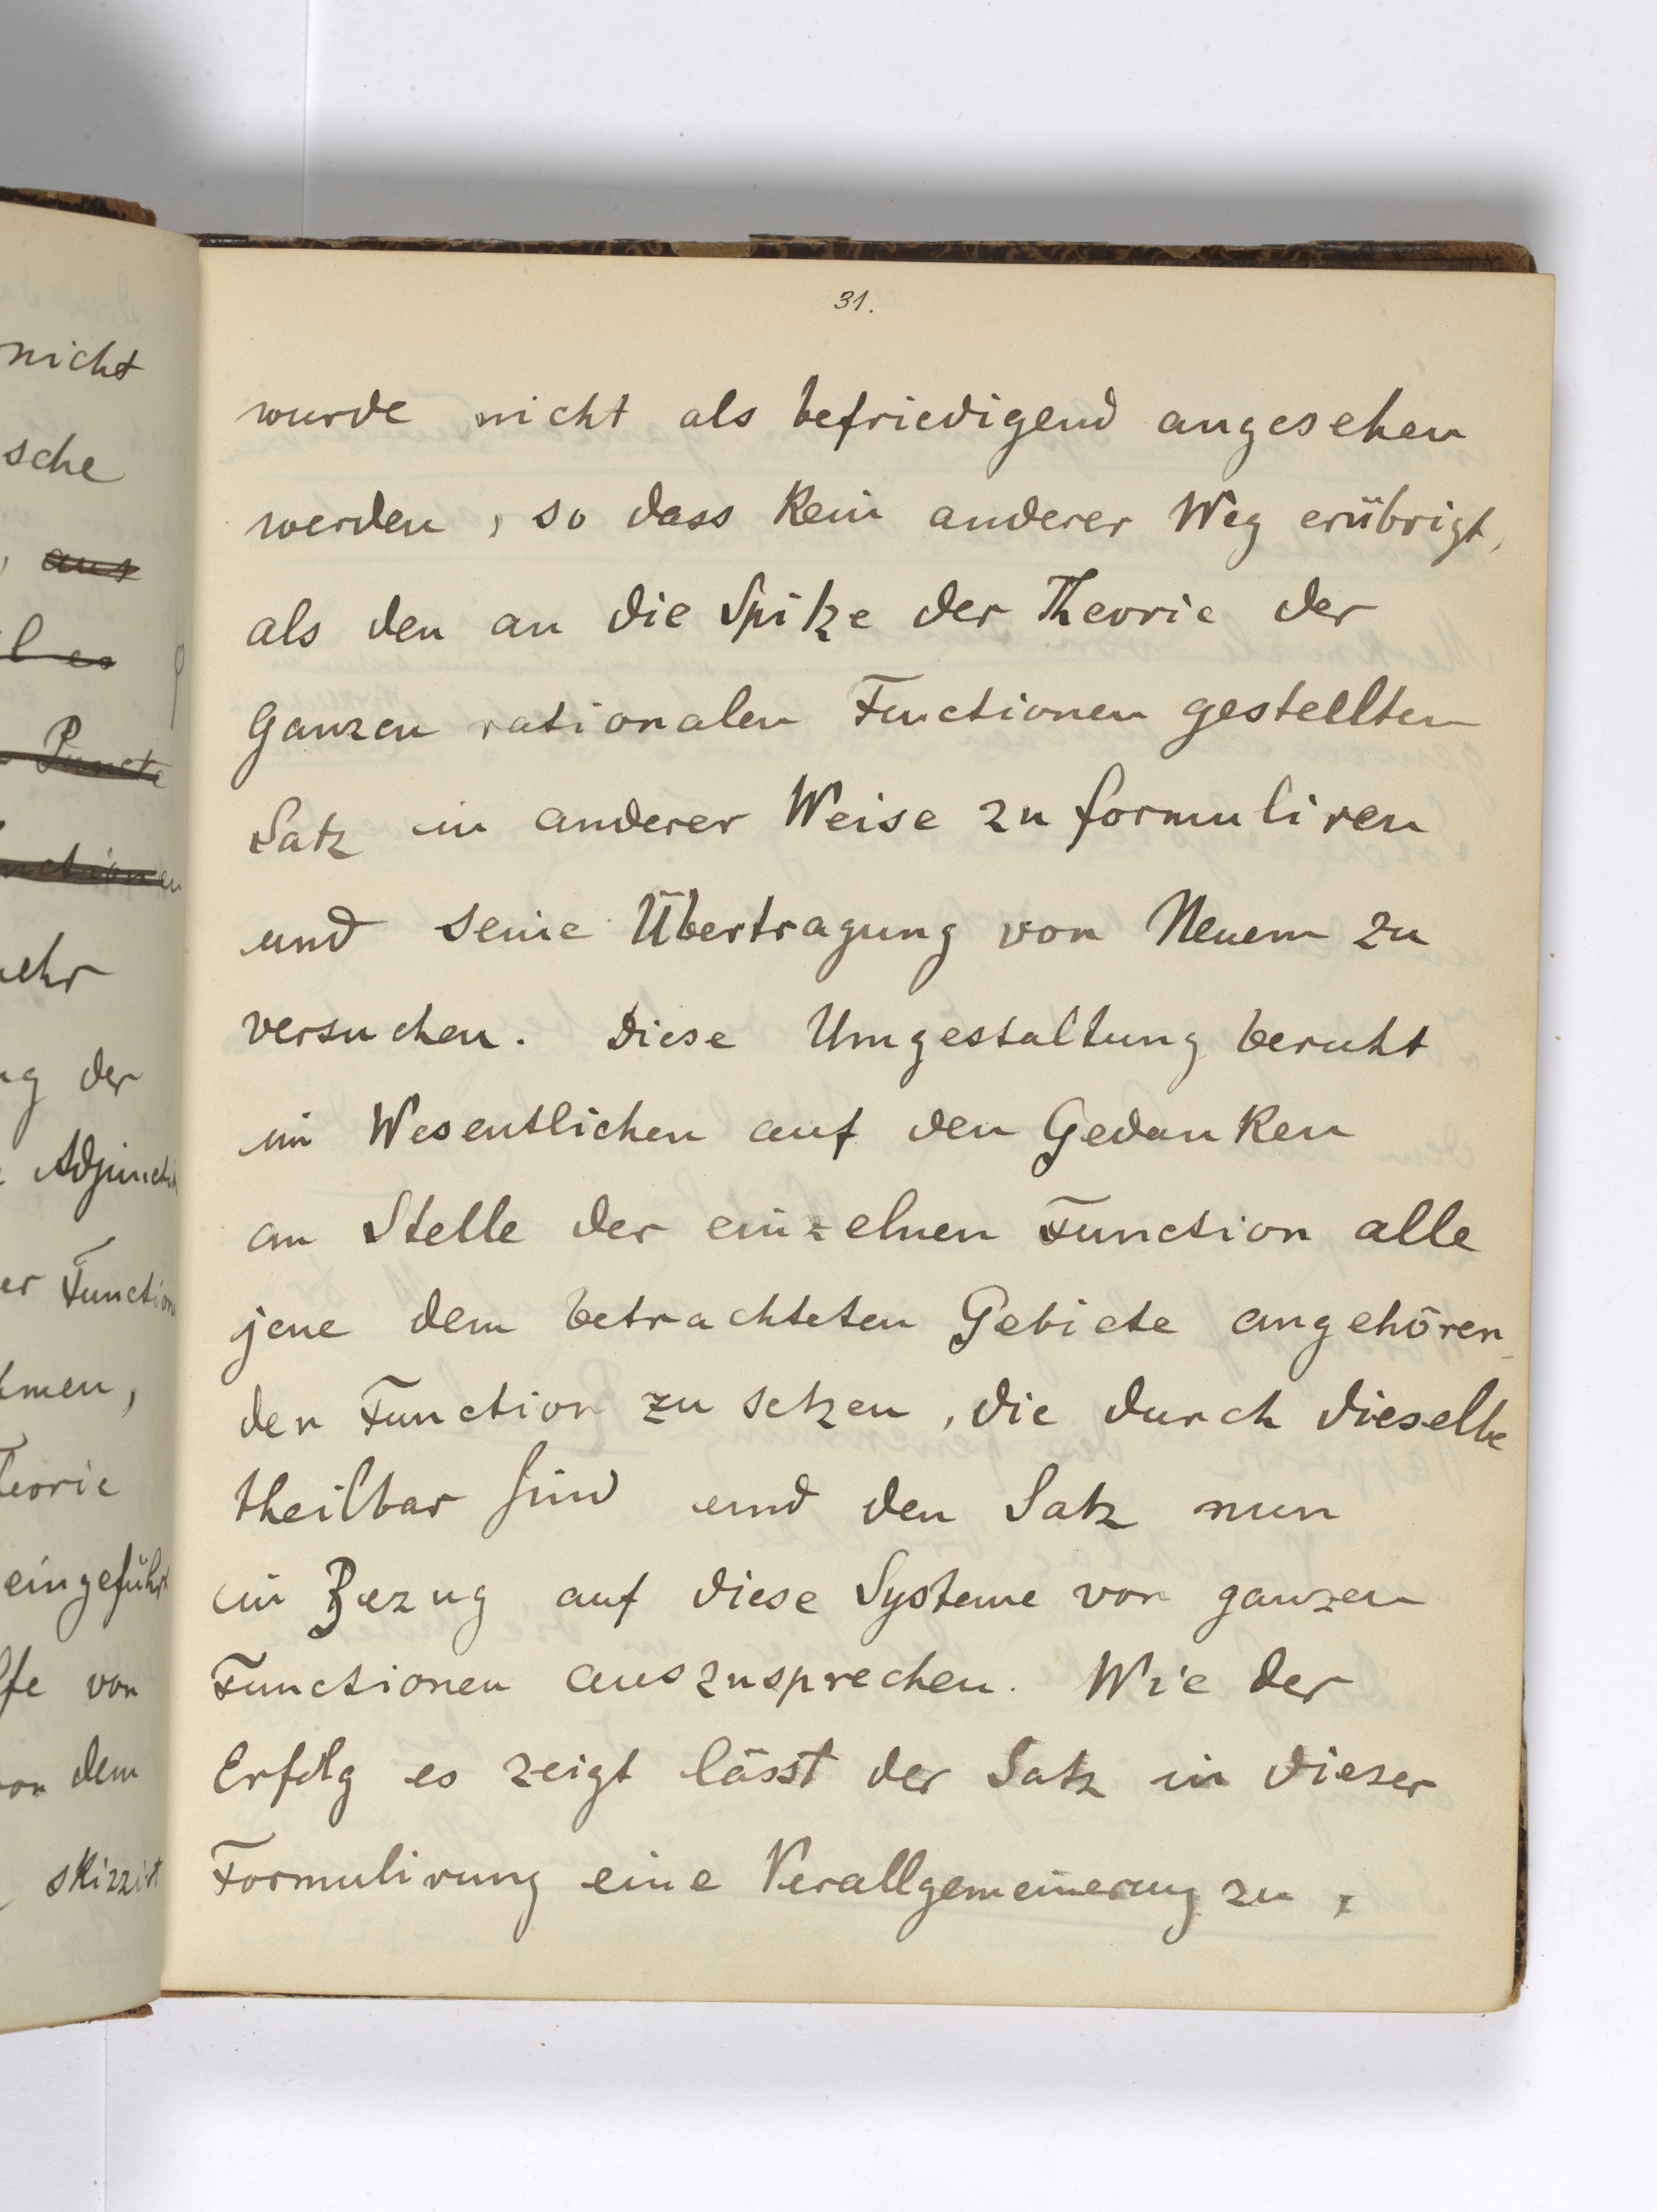 nicht
sche
, aus
l es
Puncte
nctionen
ehr
ng der
Adjuncti
er Function
hmen,
eorie
eingeführt
lfe von
von dem
skizzirt
31.
wurde nicht als befriedigend angesehen
werden, so dass kein anderer Weg erübrigt,
als den an die Spitze der Theorie der
Ganzen rationalen Functionen gestellten
Satz in anderer Weise zu formuliren
und seine Übertragung von Neuem zu
versuchen. Diese Umgestaltung beruht
im Wesentlichen auf den Gedanken
an Stelle der einzelnen Function alle
jene dem betrachteten Gebiete angehören-
den Function zu setzen, die durch dieselbe
theilbar sind und den Satz nun
in Bezug auf diese Systeme von ganzen
Functionen auszusprechen. Wie der
Erfolg es zeigt lässt der Satz in dieser
Formulirung eine Verallgemeinerung zu,